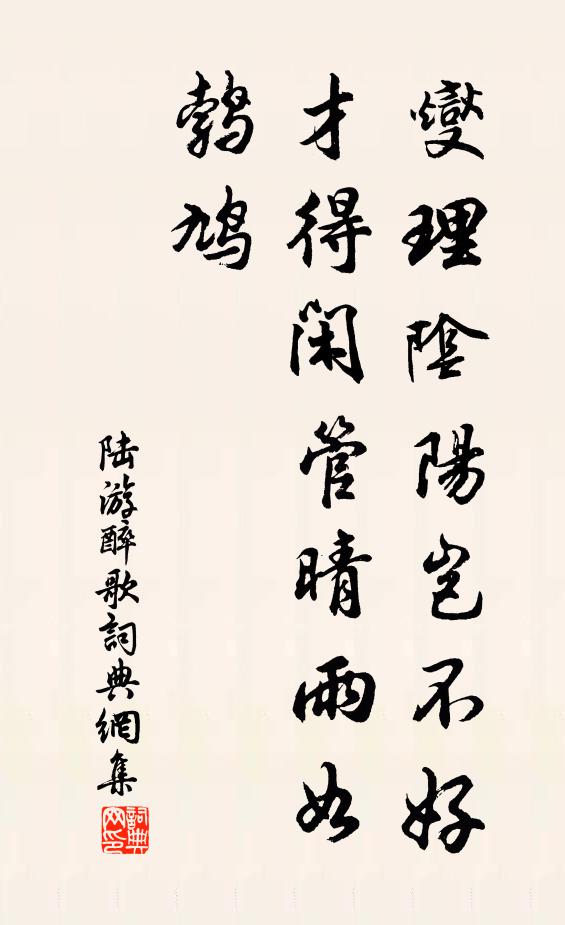 燮理陰陽豈不好
才得閑管晴雨如
鵓鳩
陆游醉歌詞典網集
詞典网印